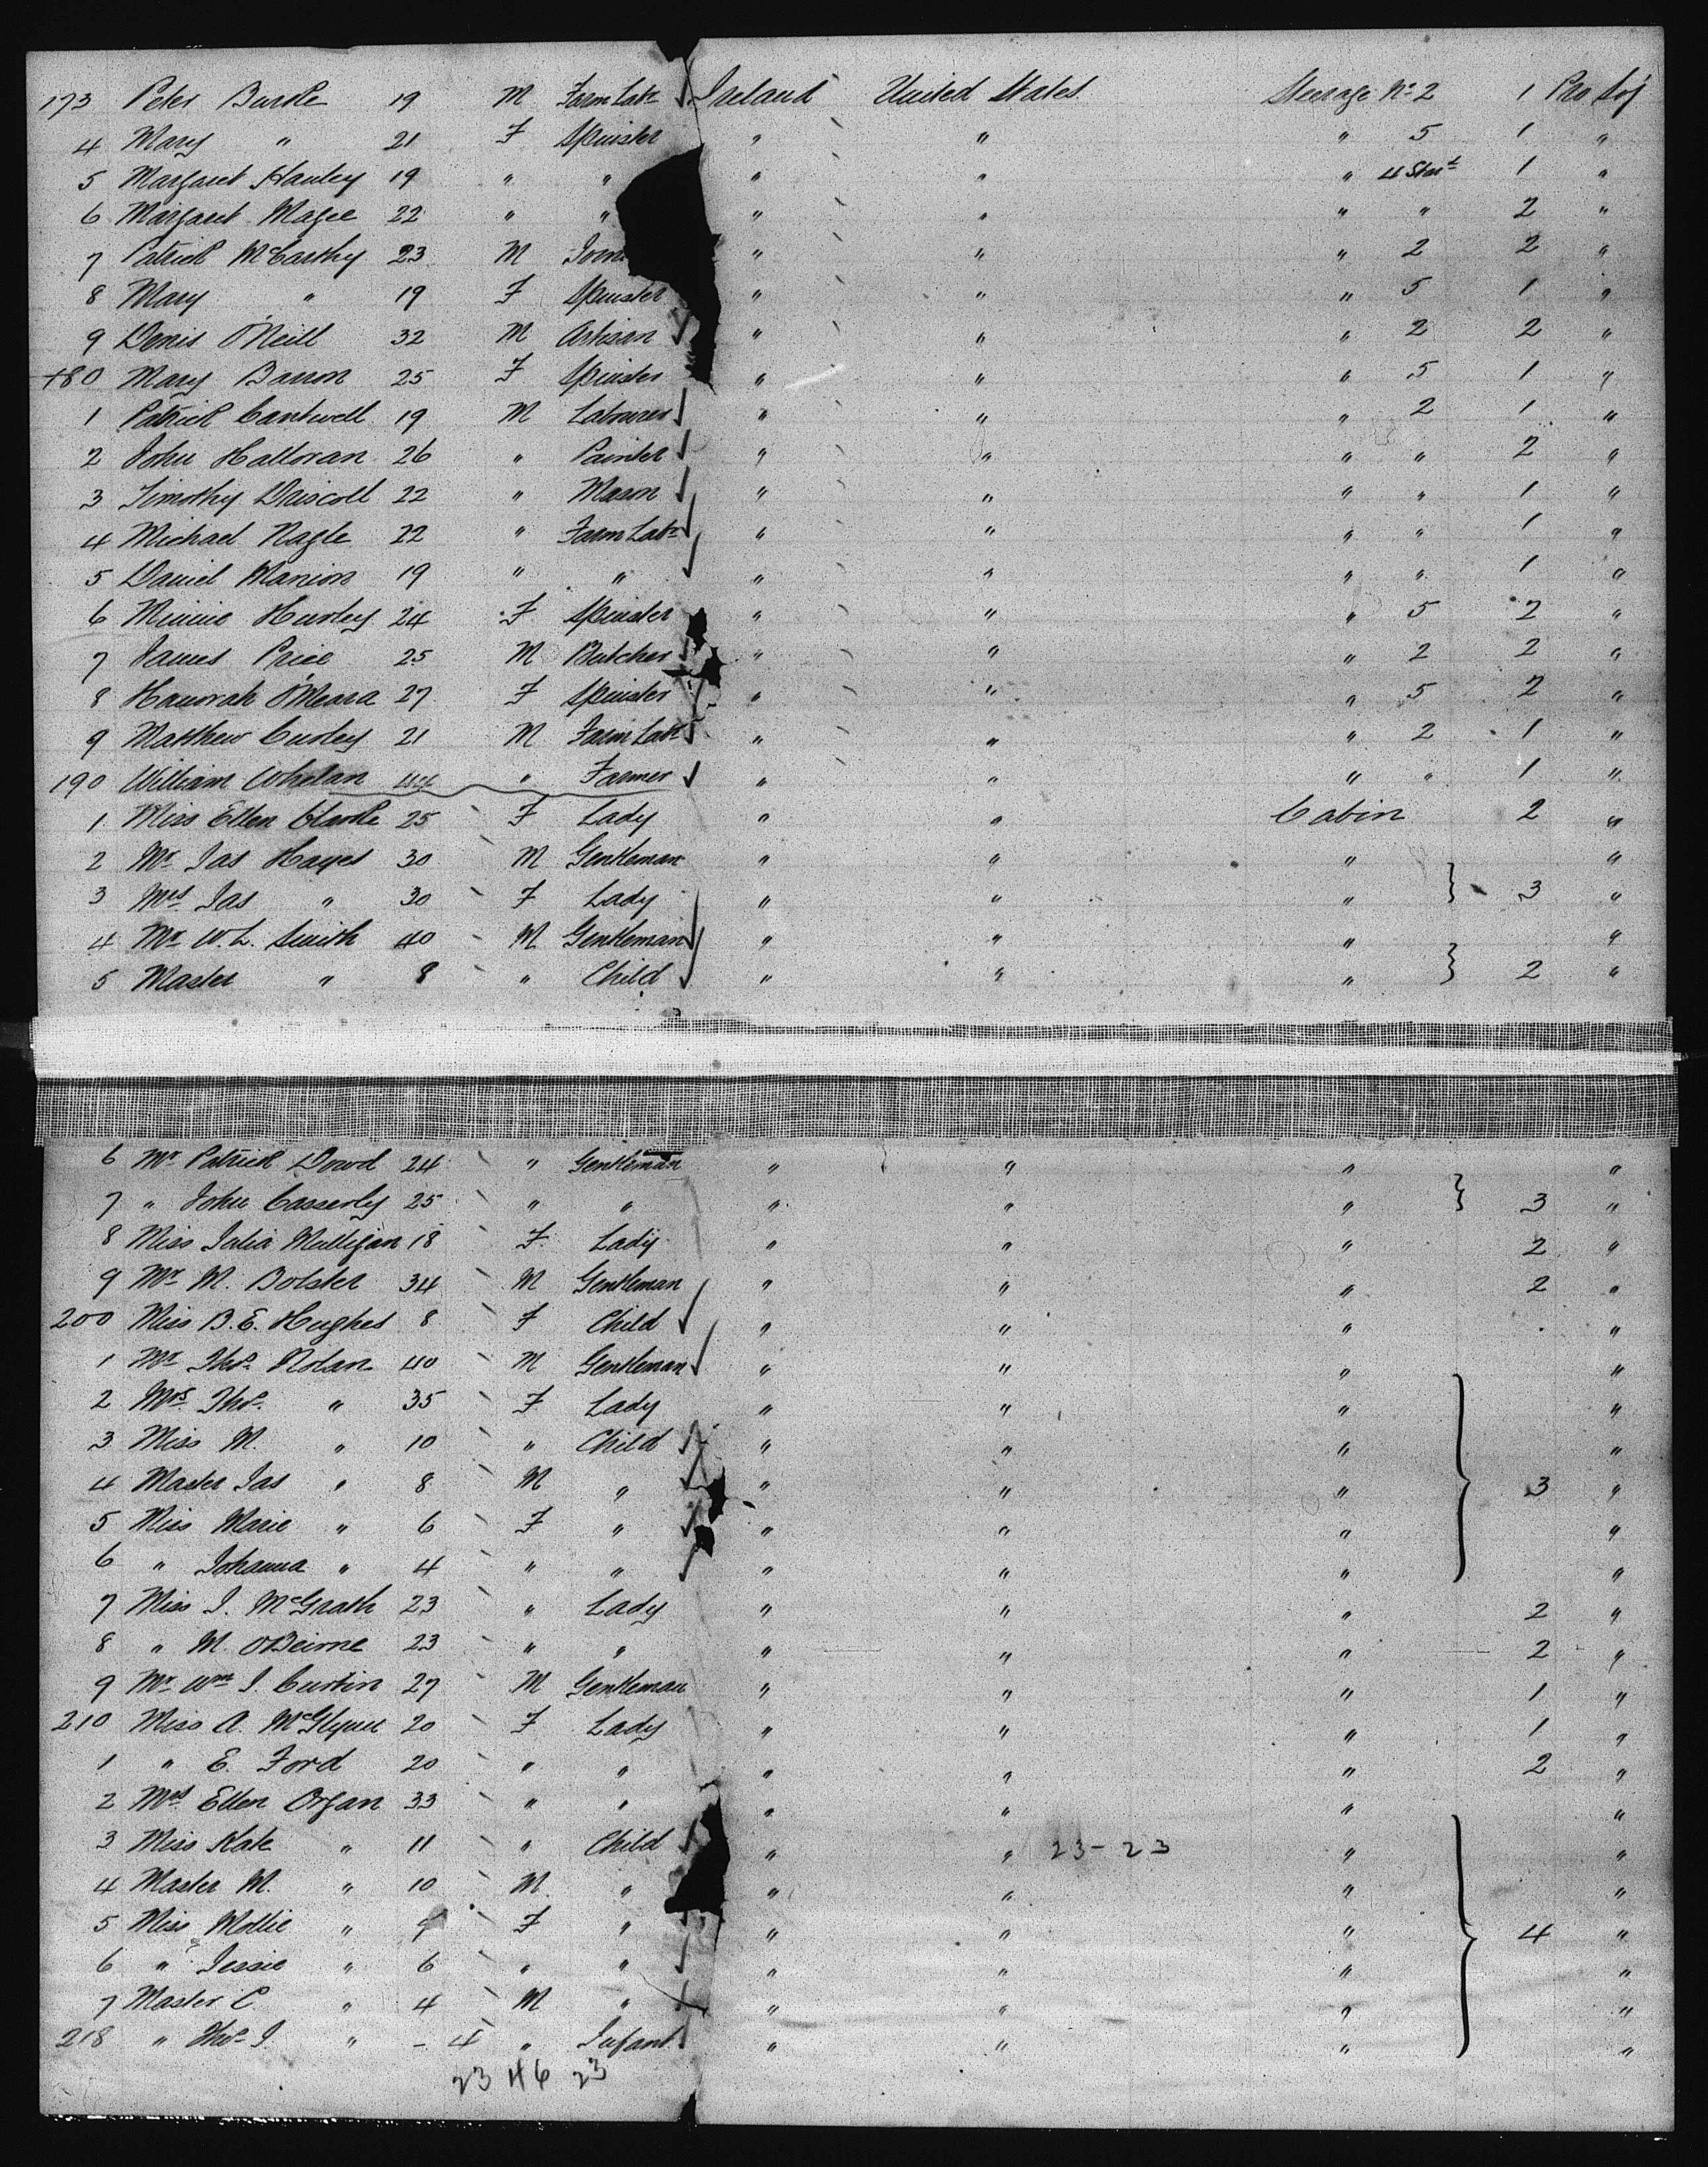 173 Peter Burke 19 M Farm Labr Ireland United States Steerage No 2 1 Pro Soj
4 Mary " 21 F Spinster " " " 5 1 "
5 Margaret Hanley 19 " " " " " 4 Star't 1 "
6 Margaret Magee 22 " " " " " " 2 "
7 Patrick McCarthy 23 M " " " 2 2 "
8 Mary " 19 F Spinster " " " 5 1 "
9 Denis O'Neill 32 M Artisan " " " 2 2 "
180 Mary Barron 25 F Spinster " " " 5 1 "
1 Patrick Cantwell 19 M Labourer " " " 2 1 "
2 John Halloran 26 " Painter " " " " 2 "
3 Timothy Driscoll 22 " Mason " " " " 1 "
4 Michael Nagle 22 " Farm Labr " " " " 1 "
5 Daniel Manion 19 " " " " " " 1 "
6 Minnie Hurley 24 F Spinster " " " 5 2 "
7 James Price 25 M Butcher " " " 2 2 "
8 Hanorah O'Meara 27 F Spinster " " " 5 2 "
9 Matthew Curley 21 M Farm Labr " " " 2 1 "
190 William Whelan 44 " Farmer " " " " 1 "
1 Miss Ellen Clarke 25 F Lady " " Cabin 2 "
2 Mr Jas Hayes 30 M Gentleman " " " "
3 Mrs Jas " 30 F Lady " " " } 3 "
4 Mr W. L. Smith 40 M Gentleman " " " "
5 Master " 8 " Child " " " } 2 "
6 Mr Patrick Dowd 24 " Gentleman " " " "
7 " John Casserly 25 " " " " " } 3 "
8 Miss Julia Mulligan 18 F Lady " " " 2 "
9 Mr M. Bolster 34 M Gentleman " " " 2 "
200 Miss B. E. Hughes 8 F Child " " " "
1 Mr Thos Nolan 40 M Gentleman " " " "
2 Mrs Thos " 35 F Lady " " " "
3 Miss M. " 10 " Child " " " "
4 Master Jas " 8 M " " " " } 3 "
5 Miss Marie " 6 F " " " " "
6 " Johanna " 4 " " " " " "
7 Miss J. McGrath 23 " Lady " " " 2 "
8 " M. O'Beirne 23 " " " " " 2 "
9 Mr Wm J. Curtin 27 M Gentleman " " " 1 "
210 Miss A. McGlynn 20 F Lady " " " 1 "
1 " E. Ford 20 " " " " " 2 "
2 Mrs Ellen Organ 33 " " " " " "
3 Miss Kate " 11 " Child " " 23-23 " "
4 Master M. " 10 M " " " " "
5 Miss Mollie " F " " " " } 4 "
6 " Jessie " 6 " " " " " "
7 Master C. " 4 M " " " " "
218 " Thos J. " - 4 " Infant " " " "
23 46 23